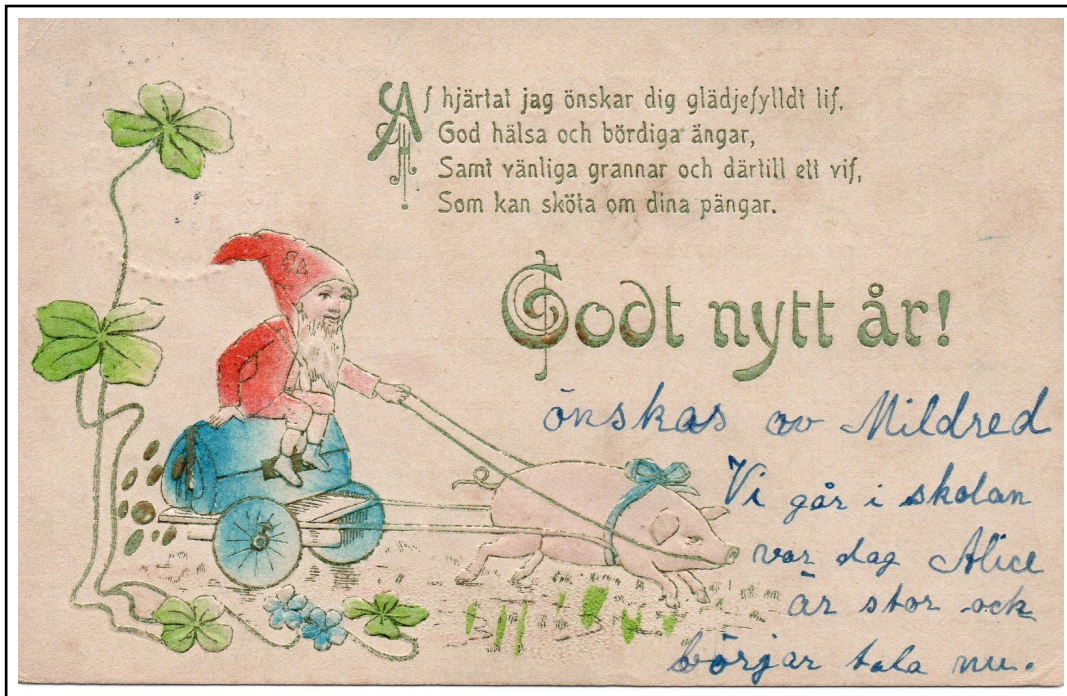 Af hjärtat jag önskar dig glädjefylldt lif,
God hälsa och bördiga ängar,
Samt vänliga grannar och därtill ett vif,
Som kan sköta om dina pängar.
Godt nytt år!
önskas av Mildred
Vi går i skolan
var dag Alice
är stor ock
börjar tala nu.